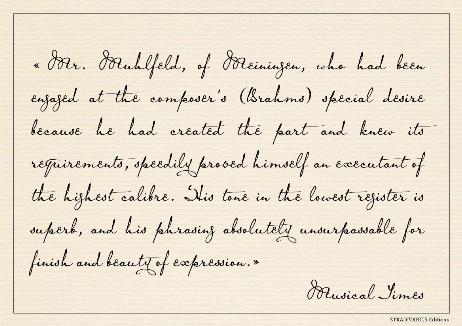 « Mr. Muhlfeld, of Meiningen, who had been
engaged at the composer's (Brahms) special desire
because he had created the part and knew its
requirements, speedily proved himself an executant of
the highest calibre. His tone in the lowest register is
superb, and his phrasing absolutely unsurpassable for
finish and beauty of expression.»
Musical Times
STRADIVARIUS Editions